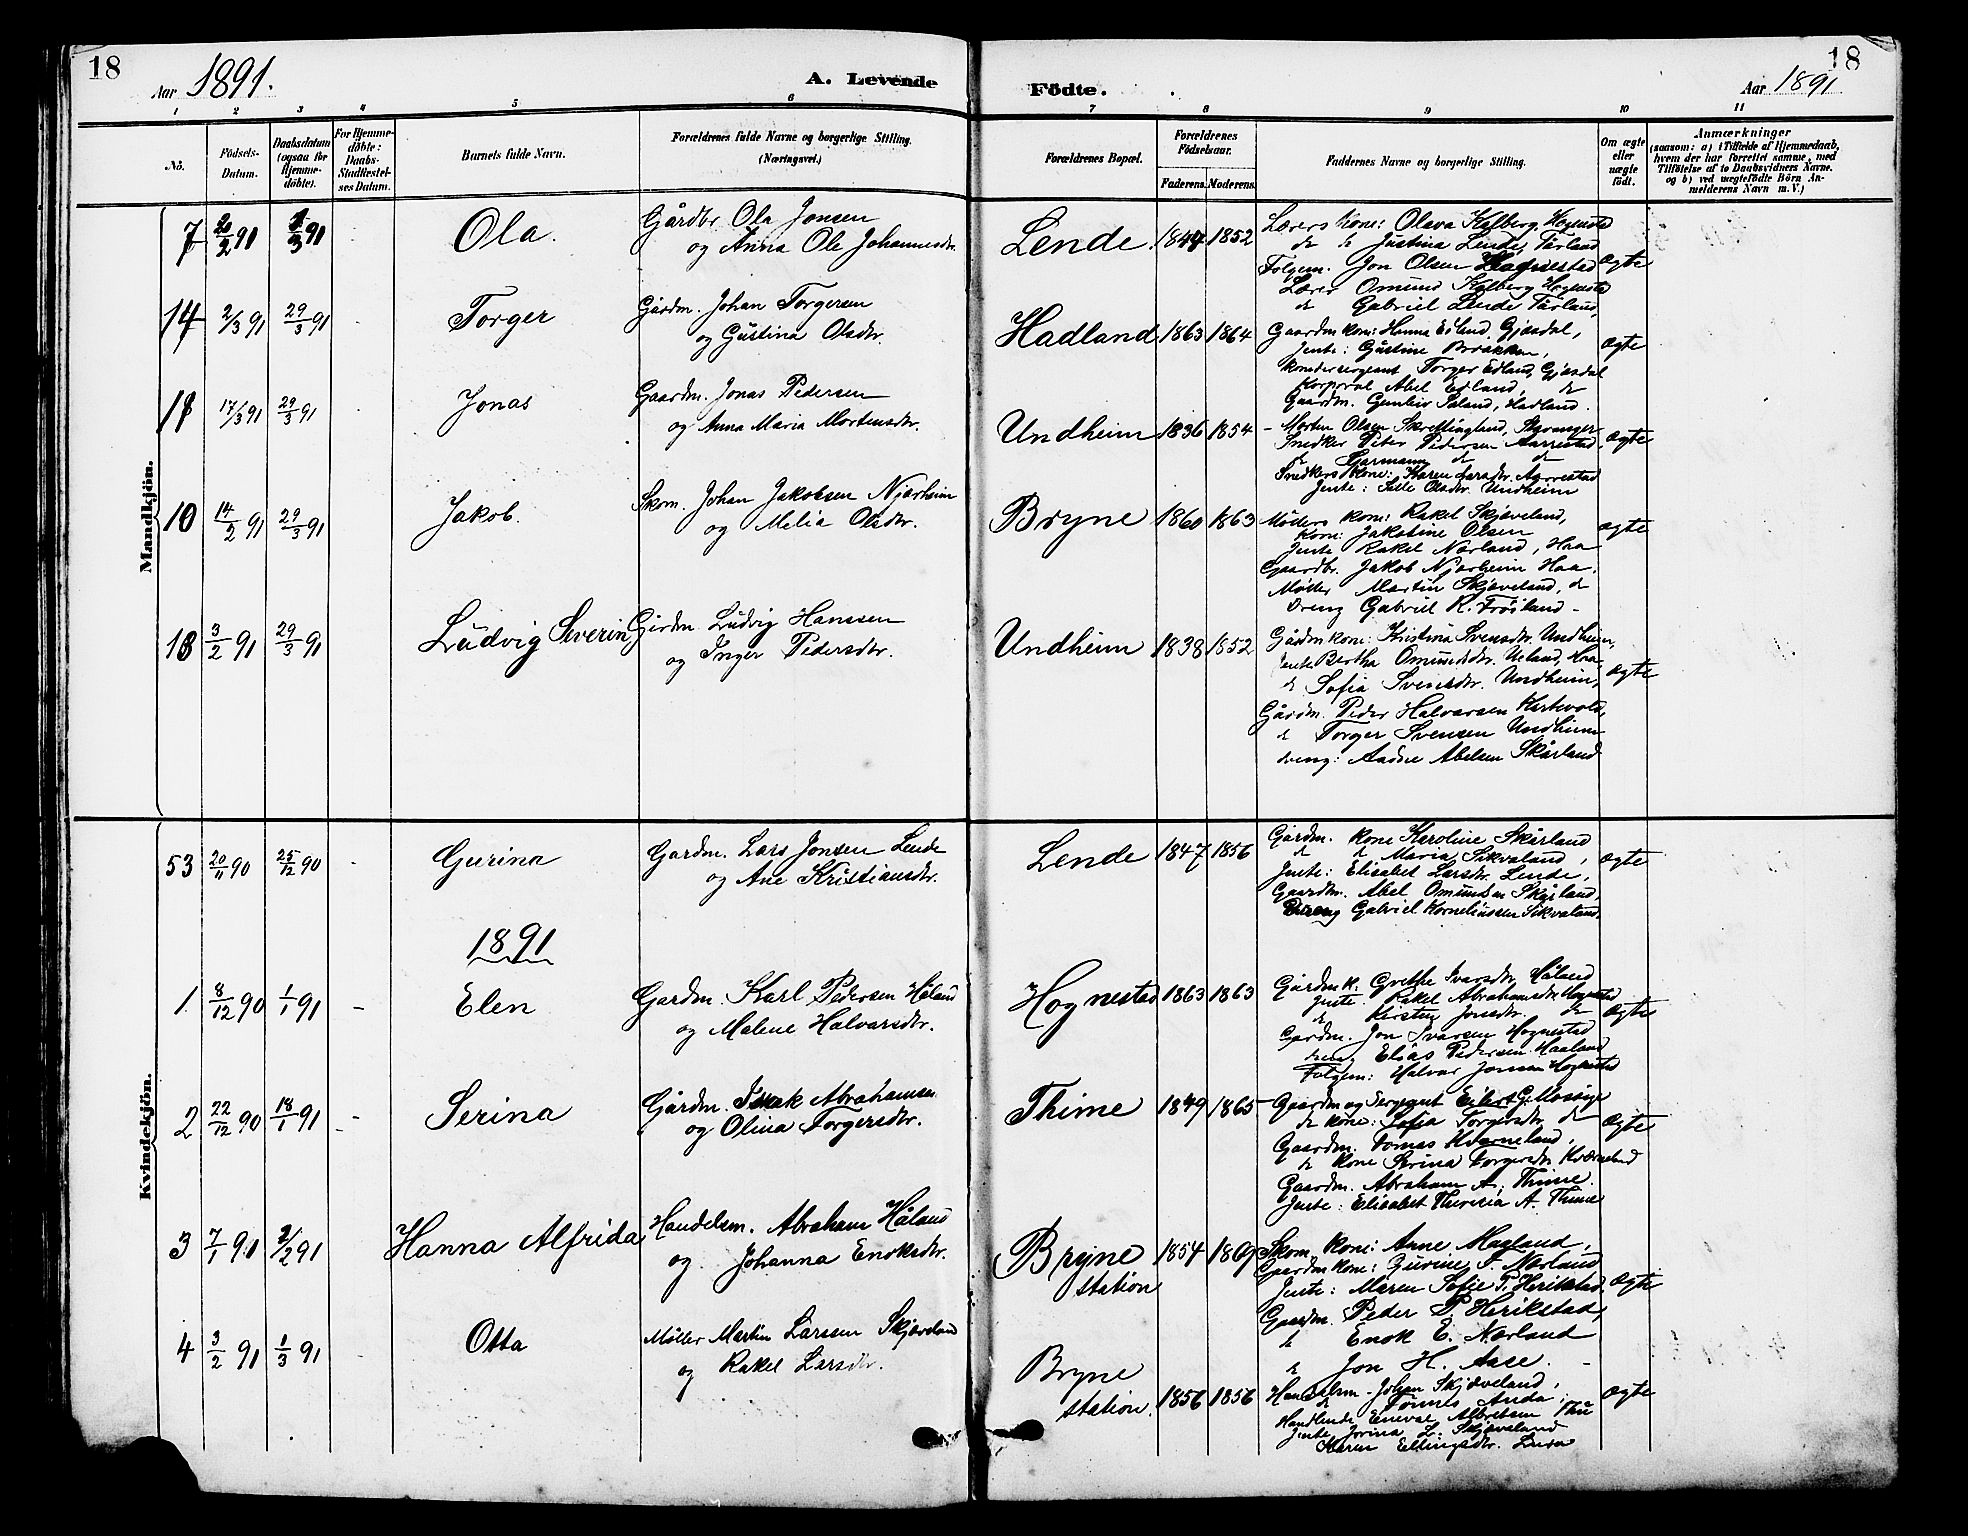 18
Aar 1891.
A. Levende
Födte.
18
Aar 1891
1 2 3 4 5 6 7 8 9 10 11
No.
Födsels-
Datum.
Daabsdatum
(ogsaa for
Hjemme-
döbte).
For Hjemme-
döbte:
Daabs-
Stadfæstel-
ses Datum.
Barnets fulde Navn.
Forældrenes fulde Navne og borgerlige Stilling.
(Næringsvei.)
Forældrenes Bopæl.
Forældrenes
Födselsaar.
Faderens. Moderens.
Faddernes Navne og borgerlige Stilling.
Om ægte
eller
uægte
födt.
Anmærkninger
(saasom: a) i Tilfælde af Hjemmedaab,
hvem der har forrettet samme, med
Tilföielse af to Daabsvidners Navne.
og b) ved uægtefödte Börn An-
melderens Navn m. V.)
Mandkjön.
7 20/2 91 1/3 91 Ola. Gårdbr Ola Jonsen
og Anna Ole Johannesdtr.
Lende 1847 1852
Lærers kone: Olava Kalberg, Hognestad
do do Justina Lende, Tårland
Folgem. Jon Olsen Hognestad
Lærer Omund Kalberg Hognestad
do Gabriel Lende Tårland,
ægte
14 2/3 91 29/3 91 Torger Gårdm. Johan Torgersen
og Gustina Olsdtr.
Hadland 1863 1864
Gaardm kone: Hanna Edland, Gjæsdal,
Jente: Gustine Brækken,
Kommandersergeant Torger Edland, Gjæsdal
Korporal Abel Edland, do
Gaardm. Gunleiv Saland, Hadland.
ægte
17 17/3 91 29/3 91 Jonas Gaardm. Jonas Pedersen
og Anna Maria Mortensdtr.
Undheim 1836 1854
Morten Olsen Skrettingland, Stavanger
Snedker Peter Pedersen Aarrestad,
do Garmann do do
Snedkers kone: Karen Larsdtr. Aarrestad
Jente: Sille Olsdtr. Undheim
ægte
10 14/2 91 29/3 91 Jakob. Skom. Johan Jakobsen Njærheim
og Melia Olsdtr.
Bryne 1860 1863
Møllers kone: Rakel Skjæveland,
Kone: Jakobine Olsen
Jente Rakel Nærland, Haa
Gaardbr. Jakob Njærheim Haa,
Møller Martin Skjæveland, do
Dreng Gabriel K. Frøiland.
ægte
18 3/2 91 29/3 91 Ludvig Severin Gårdm. Ludvig Hanssen
og Inger Pedersdtr.
Undheim 1838 1852
Gårdm kone: Kristina Svensdtr. Undheim,
Jente Bertha Omundsdtr. Ueland, Haa,
do Sofia Svensdtr. Undheim,
Gårdm. Peder Halvarsen Hertevold,
do Torger Svensen Undheim
dreng: Aadne Abelsen Skårland
ægte
Kvindekjön.
53 20/11 90 25/12 90 Gurina Gardm. Lars Jonsen Lende
og Ane Kristiansdtr.
Lende 1847 1856
Gårdm. kone Karoline Skårland
do do Maria Sikvaland,
Jente: Elisabet Larsdtr. Lende,
Gaardm. Abel Omundsen Skårland,
Dreng Gabriel Korneliussen Sikvaland.
ægte
1891
1 8/12 90 1/1 91 Elen Gardm. Karl Pedersen Håland
og Malene Halvarsdtr.
Hognestad 1863 1863
Gårdm k. Grethe Ivarsdtr. Håland
Jente. Rakel Abrahamsdtr Hognestad
do Kirsten Jonsdtr. do
Gardm. Jon Ivarsen Hognestad
dreng Elias Pedersen Haaland
Folgem: Halvar Jonsen Hognestad
ægte
2 22/12 90 18/1 91 Serina Gårdm. Isak Abrahamsen
og Olina Torgersdtr.
Thime 1849 1865
Gaardm og Sergeant Eilert G. Mossige
do kone: Sofia Torgersdtr. do
Gaardm. Tomas Kverneland,
do kone Serina Torgersdtr Kværneland
Gaardm. Abraham A. Thime.
Jente: Elisabet Theresia A. Thime
ægte
3 7/1 91 2/2 91 Hanna Alfrida Handelsm. Abraham Håland
og Johanna Enoksdtr.
Bryne
station
1854 1869
Skom. kone: Anne Haaland,
Gaardm kone: Gurine F. Nærland
Jente: Maren Sofie P. Herikstad.
Gaardm. Peder P. Herikstad,
do Enok E. Nærland
do Jon H. Aase.
ægte
4 3/2 91 1/3 91 Otta Møller Martin Larssen Skjæveland
og Rakel Larsdtr.
Bryne
station.
1856 1856
Handelsm. Johan Skjæveland,
do Tønnes Anda
Handlende Enevald Albretsen Thu
Jente Jorina L. Skjæveland
Karen Ellingsdtr. Lura
ægte